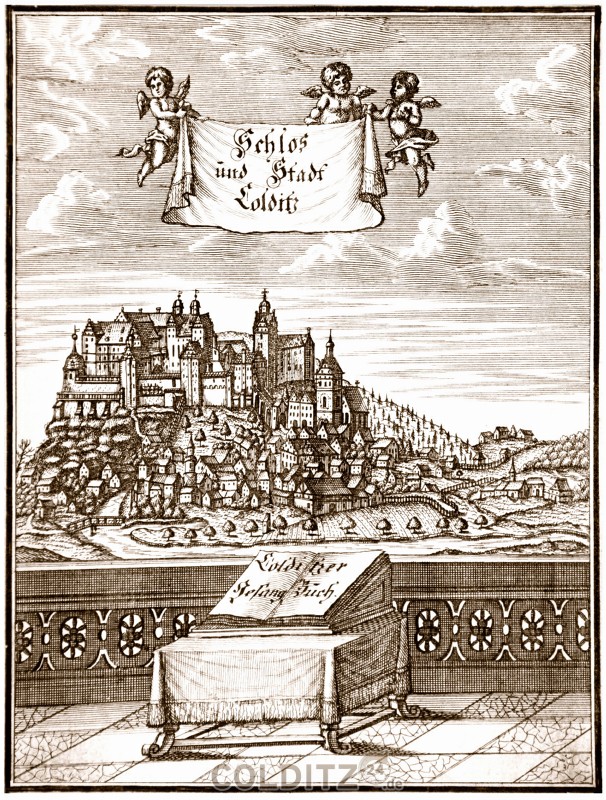 Schlos
und Stadt
Colditz
Colditzer
Gesang Buch.
COLDITZ24.de